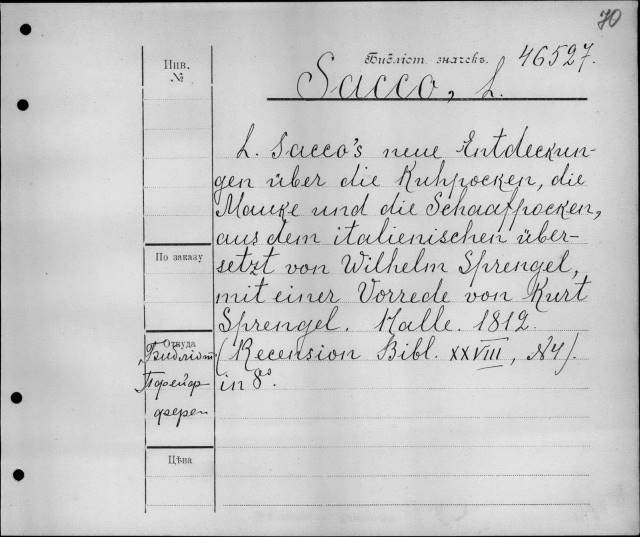 70
Библіот. значекъ. 46527.
Инв.
№
Sacco, L.
L. Sacco's neue Entdeckun-
gen über die Kuhpocken, die
Mauke und die Schaafpocken,
aus dem italienischen über-
По заказу
setzt von Wilhelm Sprengel,
mit einer Vorrede von Kurt
Sprengel. Halle. 1812.
Откуда
(Recension Bibl. XXVIII, N4).
Библіот.
in 8°.
Цѣна